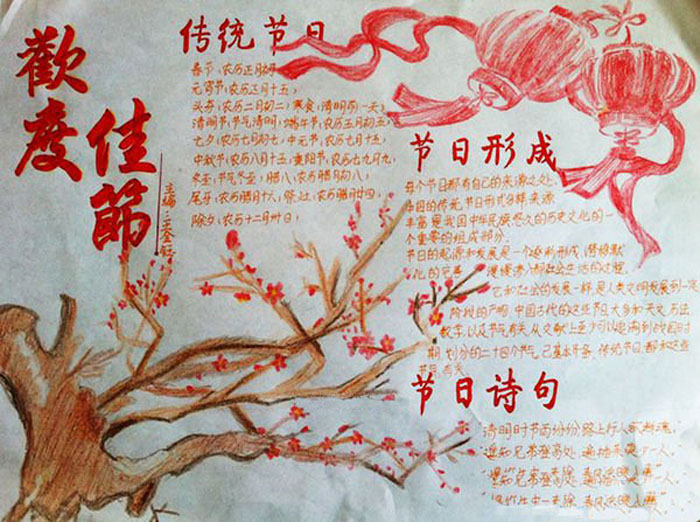 歡度
佳節
主编:王
传统节日
春节(农历正月初一)
元宵节(农历正月十五)
头牙(农历二月初二)寒食(清明前一天)
清明节(节气清明)端午节(农历五月初五)
七夕(农历七月初七)中元节(农历七月十五)
中秋节(农历八月十五)重阳节(农历九月九)
冬至(节气冬至)腊八(农历腊月初八)
尾牙(农历腊月十六)祭灶(农历腊月廿四)
除夕(农历十二月卅日)
节日形成
每个节日都有自己的来源之处,
我国的传统节日形式多样,来源
丰富是我国中华民族悠久的历史文化的一
个重要的组成部分.
节日的起源和发展是一个逐渐形成,潜移默
化的完善 慢慢渗入到社会生活的过程.
它和社会的发展一样,是人类文明发展到一定
阶段的产物,中国古代的这些节日,大多和天文,历法
数学,以及节气有关,从文献上至少可以追溯到战国时
期,划分的二十四个气,已基本齐备,传统节日,都和这些
节日有关.
节日诗句
"清明时节雨纷纷,路上行人欲断魂."
"遥知兄弟登高处,遍插茱萸少一人."
"爆竹 春风送暖
"爆竹声中一岁除,春风送暖